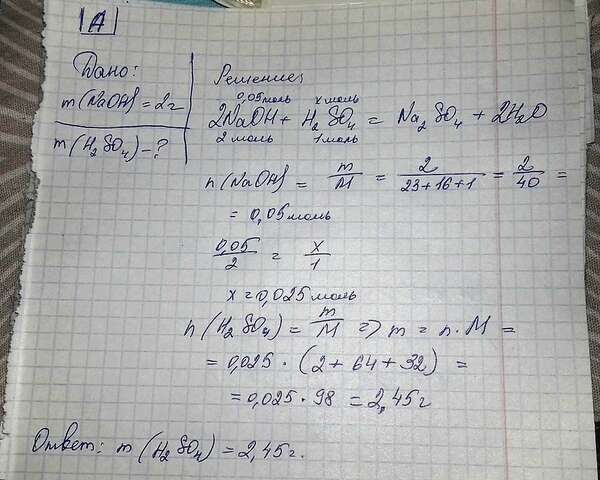 А
Дано:
m(NaOH) = 2г
m(H₂SO₄) - ?
Решение:
0,05 моль x моль
2NaOH + H₂SO₄ = Na₂SO₄ + 2H₂O
2 моль 1 моль
n(NaOH) = m/M = 2/(23+16+1) = 2/40 =
= 0,05 моль
0,05/2 = x/1
x = 0,025 моль
n(H₂SO₄) = m/M => m = n·M =
= 0,025 · (2 + 64 + 32) =
= 0,025 · 98 = 2,45 г
Ответ: m(H₂SO₄) = 2,45 г.